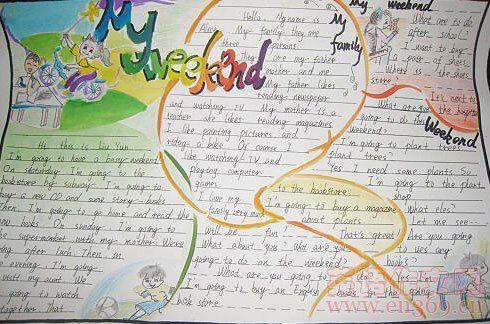 My weekend
Hello, My name is
Alice. My family they are
three persons.
They are my father
mother and me.
My father likes
reading newspaper
and watching TV. My mother is a
teacher she likes reading magazines
I like painting pictures and
riding a bike. Of course I
like watching TV and
playing computer
games
I love my
family very much
My
family
My weekend
What are to do
after school?
I want to buy
a post of shoes
Where is the shoes
store?
It's next to
the hospital
What are you
going to do this
weekend?
Weekend
I'm going to plant
trees
plant trees?
Yes I need some plants. So
I'm going to the plant
shop
Hi this is Liu Yun
I'm going to have a busy weekend
On saturday I'm going to the
bookstore by subway. I'm going to
buy a new CD and some story books
Then I'm going to go home and read the
new books. On sunday I'm going to
the supermarket with my mother. We're
going after lunch. Then in
the evening I'm going
visit my aunt. We
going to watch
together That
to the bookstore
I'm going to buy a magazine
about plants
will be fun!
That's great
What about you? What are you
going to do on the weekend?
What are you going to
Yes I'm
going to buy an English book in the
book store
What eles?
Let me see
Are you going
books?
going
www.en86.com